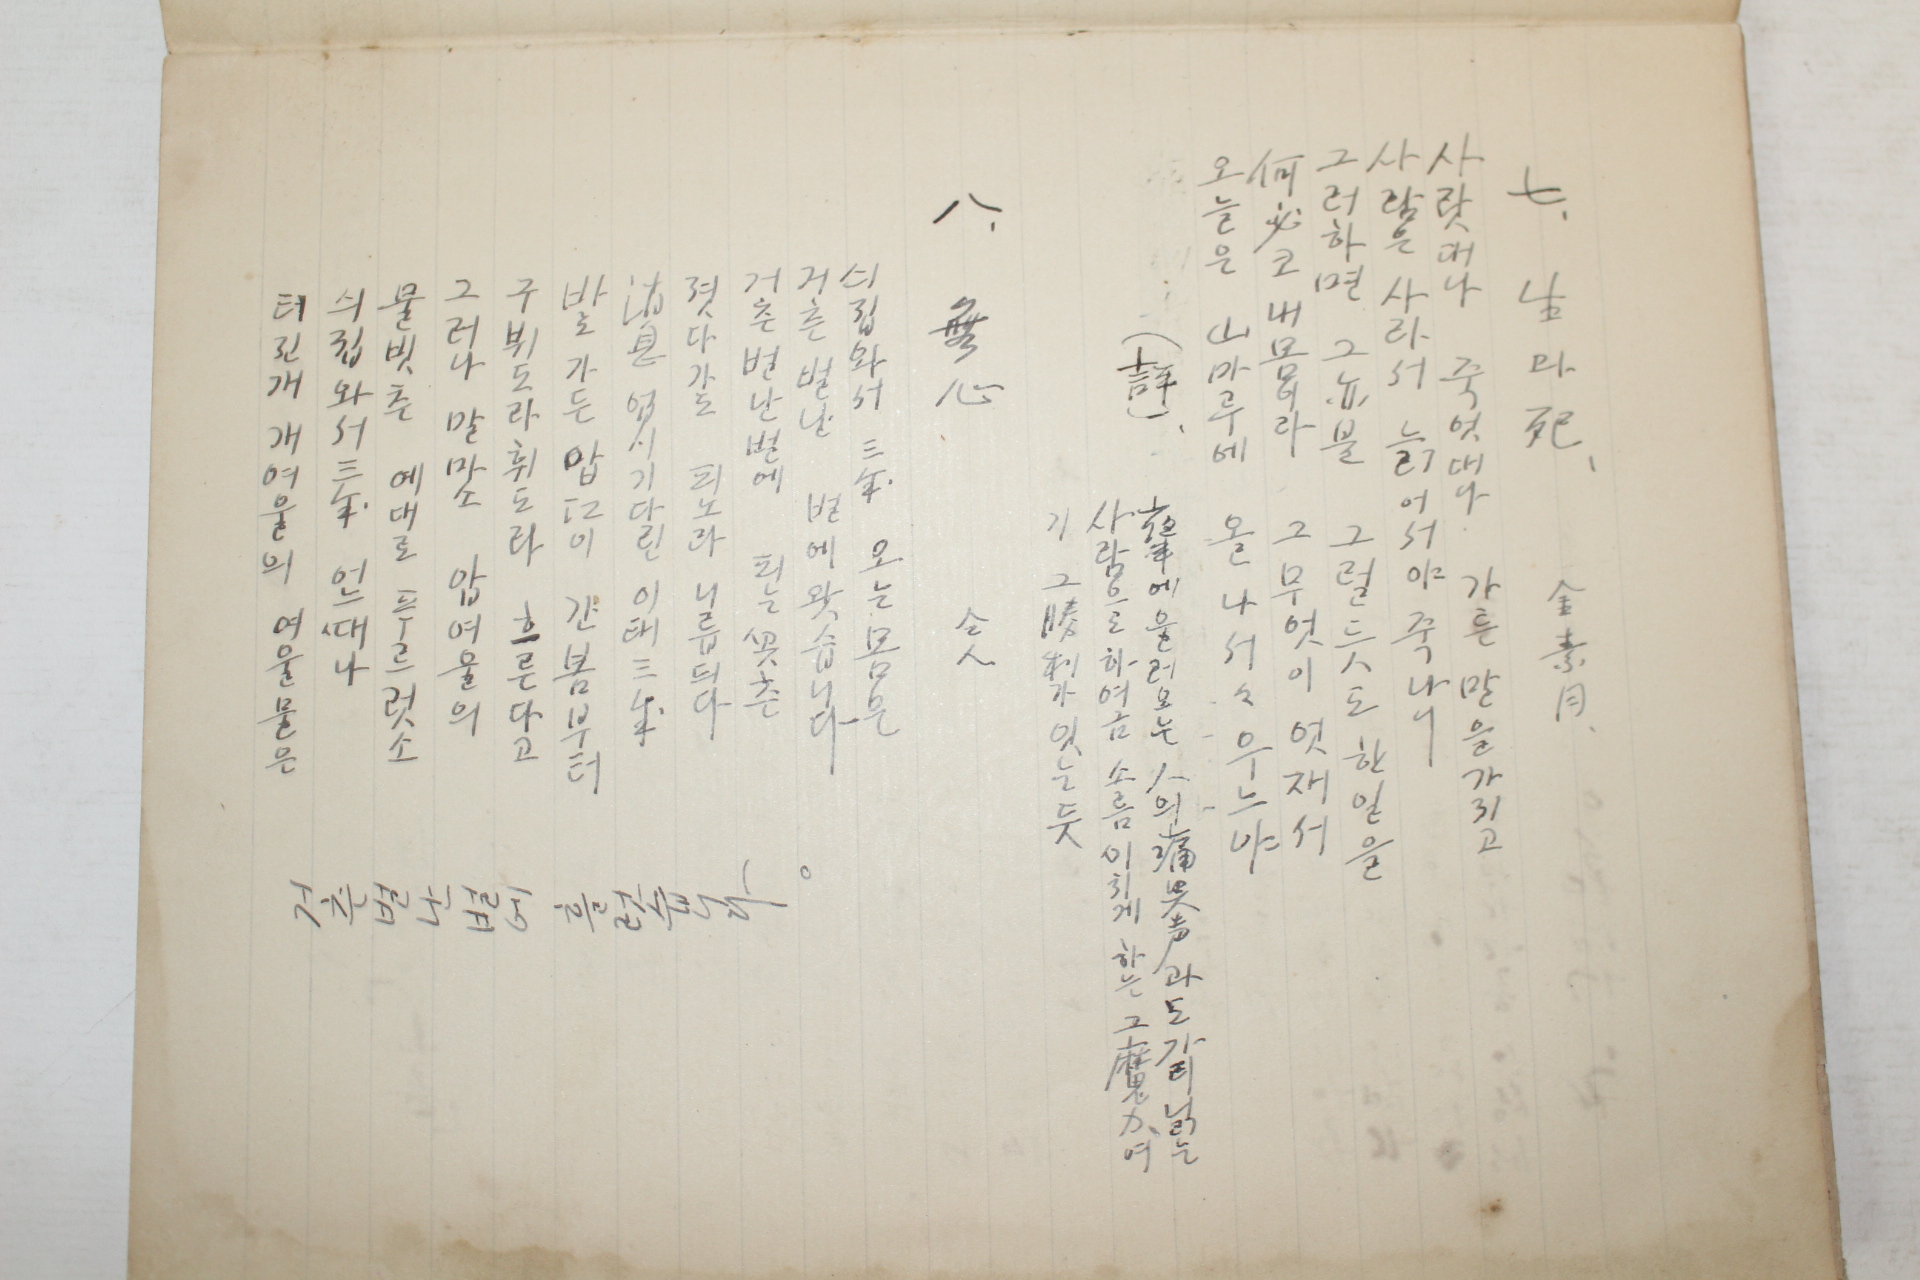 七. 남과死. 金素月.
사랏대나 죽엇대나 가튼 말을가지고
사람은 사라서 늙어서야 죽나니
그러하면 그亦是 그럴듯도 한일을
何必코 내몸이라 그무엇이 엇재서
오늘은 山마루에 올나서서 우느냐
(評).
에울려오는 人의痛哭聲과도가티 닑는
사람으로하여금 소름이치게 하는 그魔力、여
기 그勝利가 잇는듯
八. 無心 素人
싀집와서 三年 오는봄은
거츤벌난 벌에왓습니다
거츤벌난벌에 피는꼿츤
졋다가도 피노라 니릅듸다
消息 업시기다린 이태三年
발로가든 압江이 간봄부터
구뷔도라휘도라 흐른다고
그러나 말마소 압여울의
물빗츤 예대로 푸르럿소
싀집와서三年 언느때나
터진개 개여울의 여울물은
거츤벌난벌에 흘럿습니다。